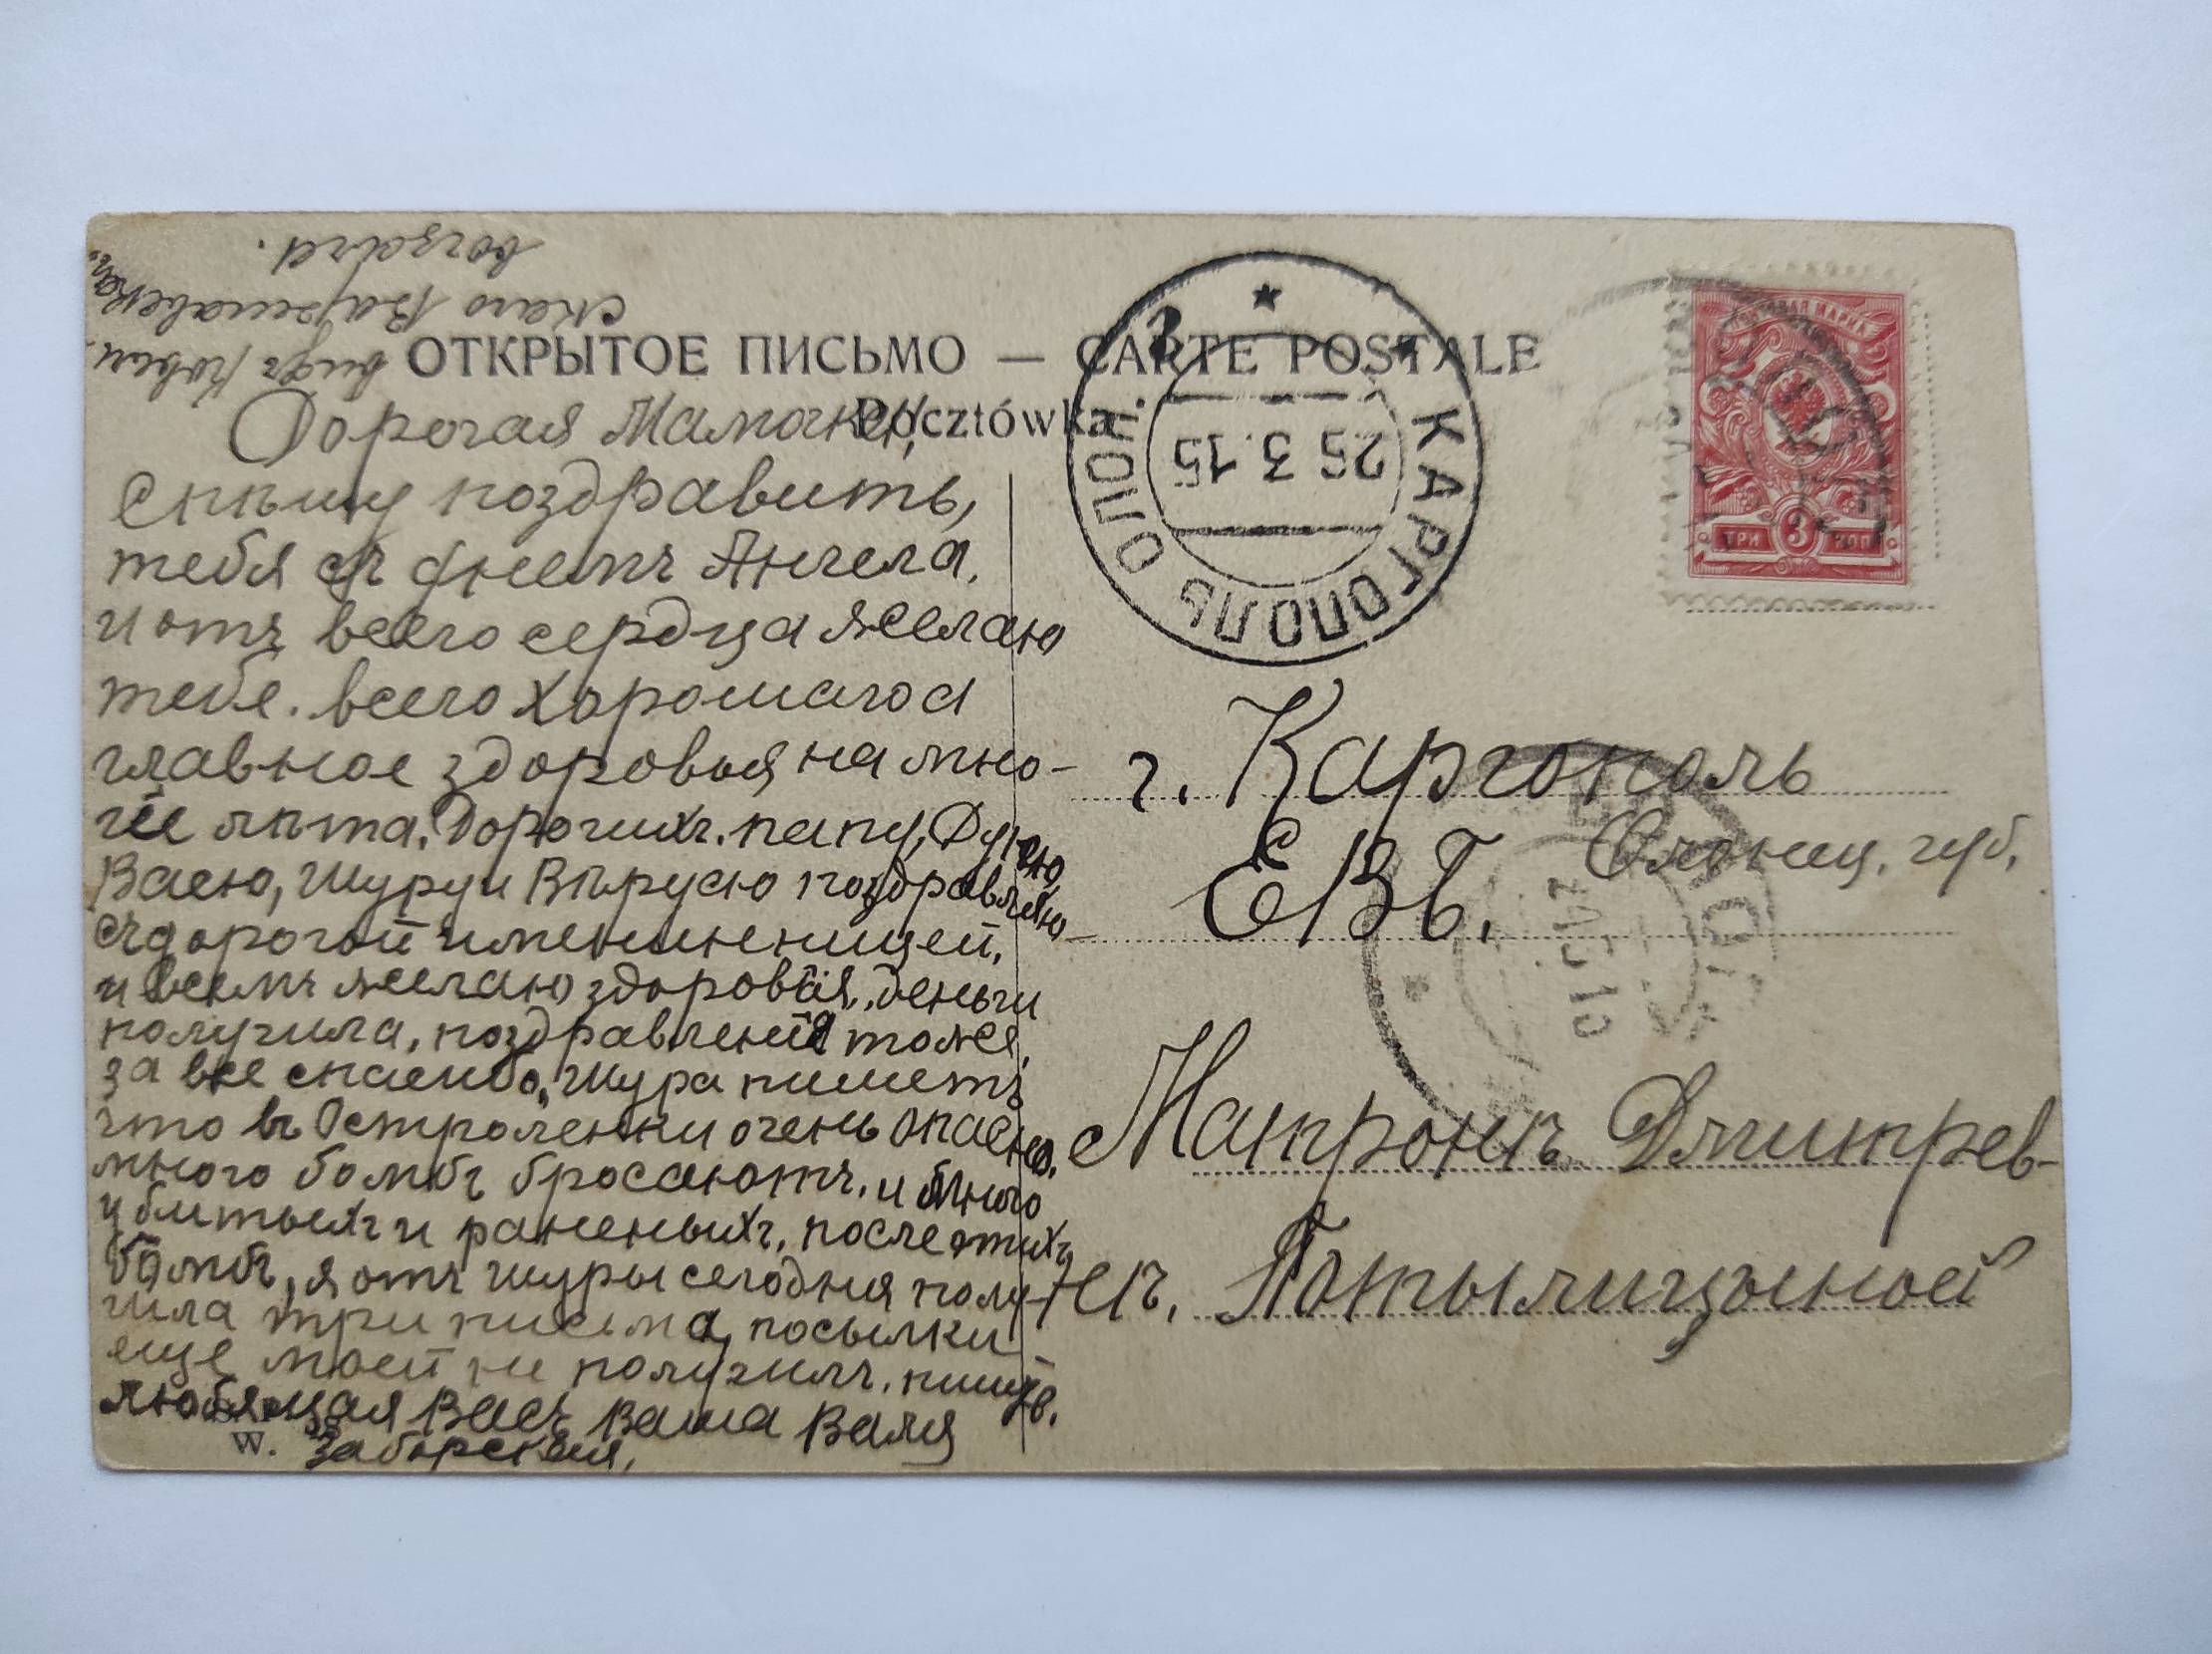 видъ Ковен.
скаго Варшавскаг.
вогзала.
ОТКРЫТОЕ ПИСЬМО — CARTE POSTALE
Pocztówka
Дорогая Мамочка,
Спѣшу поздравить,
тебя съ днемъ Ангела,
и отъ всего сердца желаю
тебе. всего хорошаго а
главное здоровья на мно-
гіе лѣта. Дорогихъ. папу, Дусю
Васю, Шуру и Вѣрусю поздравляю
съ дорогой имениненицей,
и всемъ желаю здоровья, деньги
получила, поздравления тоже,
за все спасибо, Шура пишетъ
что въ Остроленки очень опасно.
много бомбъ бросаютъ, и много
убитыхъ и раненыхъ, после этихъ
бомбъ, я отъ Шуры сегодня полу-
чила три писема, посылки
еще моей не получилъ. пишу
любящая Васъ Ваша Валя
Заборская,
W.
КАРГОПОЛЬ ОЛОН.
25.3.15
ТРИ 3 КОП
г. Каргополь
Олонец. губ.
ЕВБ.
Матронѣ Дмитрев-
нѣ, Потылицыной